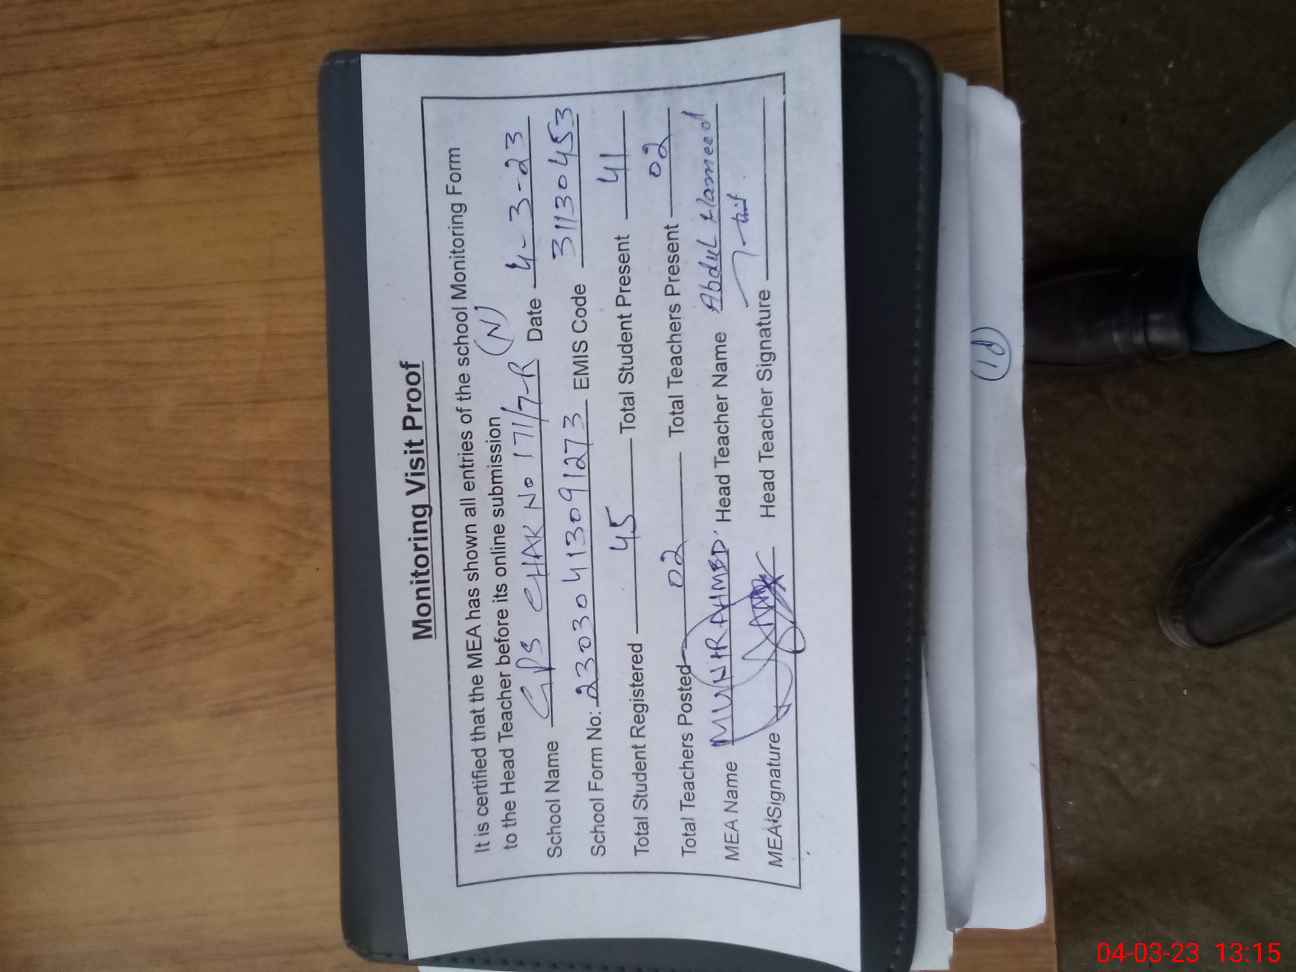 Monitoring Visit Proof
It is certified that the MEA has shown all entries of the school Monitoring Form
to the Head Teacher before its online submission
School Name GPS CHAK No 171/7-R (N) Date 4-3-23
School Form No: 23030413091273 EMIS Code 31130453
Total Student Registered 45 Total Student Present 41
Total Teachers Posted 02 Total Teachers Present 02
MEA Name MUNIR AHMED Head Teacher Name Abdul Hameed
MEA Signature Head Teacher Signature
04-03-23 13:15